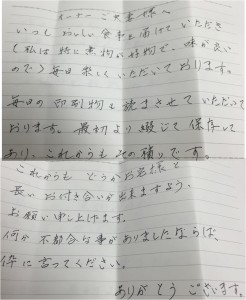 オーナーご夫妻様へ
いつもおいしい食事を届けていただき
(私は特に煮物が好物で、味が良い
ので)毎日楽しくいただいております。
毎日の印刷物も読まさせていただいて
おります。最初より綴じて保存して
あり、これからもその積りです。
これからも どうかお客様と
長いお付き合いが出来ますよう、
お願い申し上げます。
何分 不都合な事がありましたならば、
に言ってください。
ありがとうございます。